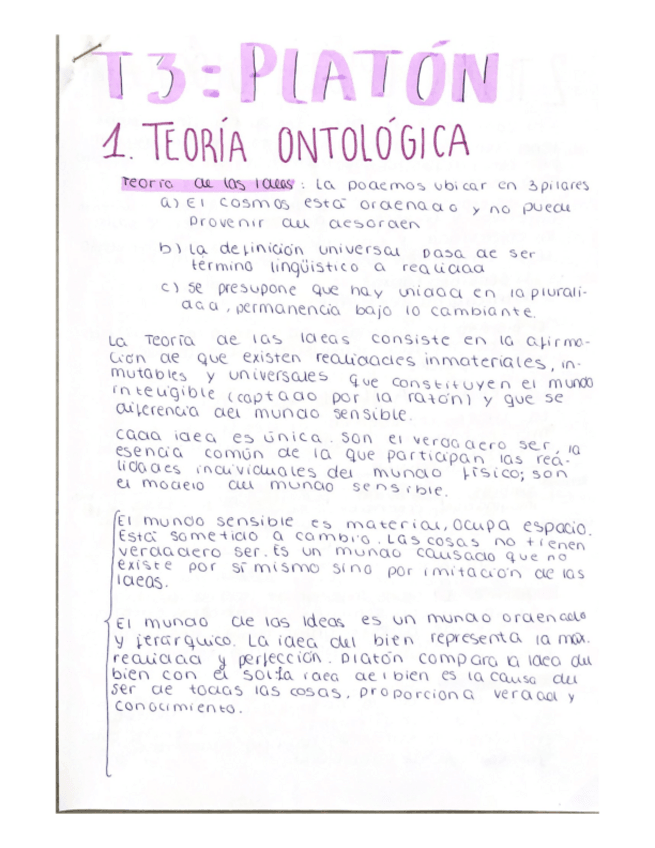 T3: PLATÓN
1. TEORÍA ONTOLÓGICA
Teoría de las Ideas: La podemos ubicar en 3 pilares
a) El cosmos está ordenado y no puede
provenir del desorden
b) La definición universal pasa de ser
término lingüístico a realidad
c) Se presupone que hay unidad en la plurali-
dad, permanencia bajo lo cambiante.
La Teoría de las Ideas consiste en la afirma-
ción de que existen realidades inmateriales, in-
mutables y universales que constituyen el mundo
inteligible (captado por la razón) y que se
diferencia del mundo sensible.
Cada idea es única. Son el verdadero ser, la
esencia común de la que participan las rea-
lidades individuales del mundo físico; son
el modelo del mundo sensible.
El mundo sensible es material, ocupa espacio.
Está sometido a cambio. Las cosas no tienen
verdadero ser. Es un mundo causado que no
existe por sí mismo sino por imitación de las
Ideas.
El mundo de las Ideas es un mundo ordenado
y jerárquico. La idea del bien representa la máx.
realidad y perfección. Platón compara la Idea del
bien con el sol. La idea del bien es la causa del
ser de todas las cosas, proporciona verdad y
conocimiento.